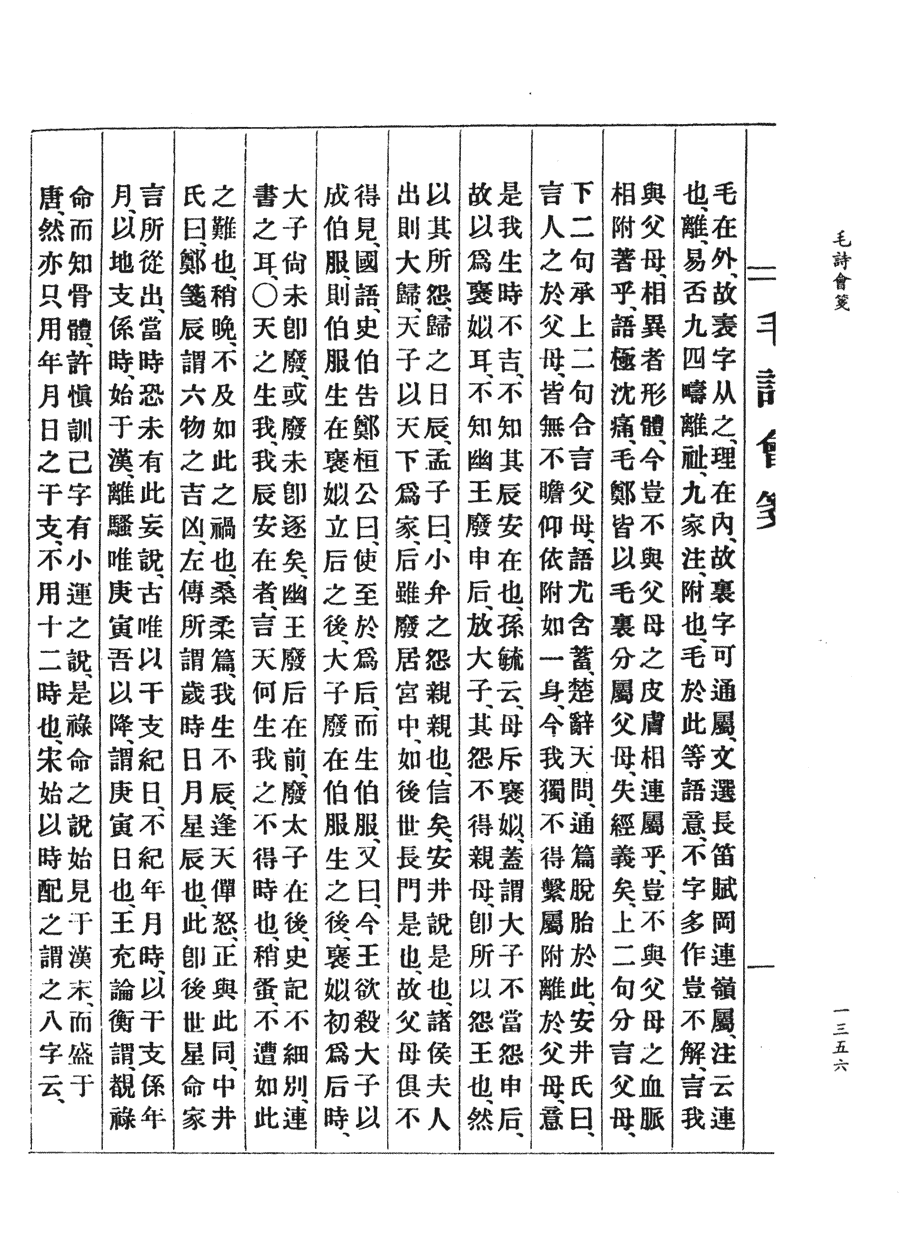 毛詩會箋
一三五六
毛詩會箋
毛在外、故表字从之、理在內、故裏字可通屬、文選長笛賦岡連嶺屬、注云連
也、離、易否九四疇離祉、九家注、附也、毛於此等語意、不字多作豈不解、言我
與父母、相異者形體、今豈不與父母之皮膚相連屬乎、豈不與父母之血脈
相附著乎、語極沈痛、毛鄭皆以毛裏分屬父母、失經義矣、上二句分言父母、
下二句承上二句合言父母、語尤含蓄、楚辭天問、通篇脫胎於此、安井氏曰、
言人之於父母、皆無不瞻仰依附如一身、今我獨不得繫屬附離於父母、意
是我生時不吉、不知其辰安在也、孫毓云、母斥襃姒、蓋謂大子不當怨申后、
故以爲襃姒耳、不知幽王廢申后、放大子、其怨不得親母、卽所以怨王也、然
以其所怨、歸之日辰、孟子曰、小弁之怨親親也、信矣、安井說是也、諸侯夫人
出則大歸、天子以天下爲家、后雖廢居宮中、如後世長門是也、故父母俱不
得見、國語、史伯告鄭桓公曰、使至於爲后、而生伯服、又曰、今王欲殺大子以
成伯服、則伯服生在襃姒立后之後、大子廢在伯服生之後、襃姒初爲后時、
大子尙未卽廢、或廢未卽逐矣、幽王廢后在前、廢太子在後、史記不細別、連
書之耳、〇天之生我、我辰安在者、言天何生我之不得時也、稍蚤、不遭如此
之難也、稍晚、不及如此之禍也、桑柔篇、我生不辰、逢天僤怒、正與此同、中井
氏曰、鄭箋辰謂六物之吉凶、左傳所謂歲時日月星辰也、此卽後世星命家
言所從出、當時恐未有此妄說、古唯以干支紀日、不紀年月時、以干支係年
月、以地支係時、始于漢、離騷唯庚寅吾以降、謂庚寅日也、王充論衡謂、覩祿
命而知骨體、許愼訓己字有小運之說、是祿命之說始見于漢末、而盛于
唐、然亦只、用年月日之干支、不用十二時也、宋始以時配之謂之八字云、